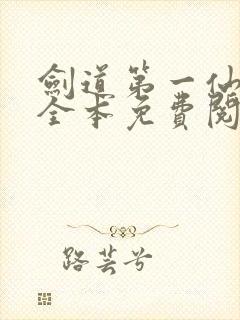 劍道第一仙
全本免費閱
路芸兮